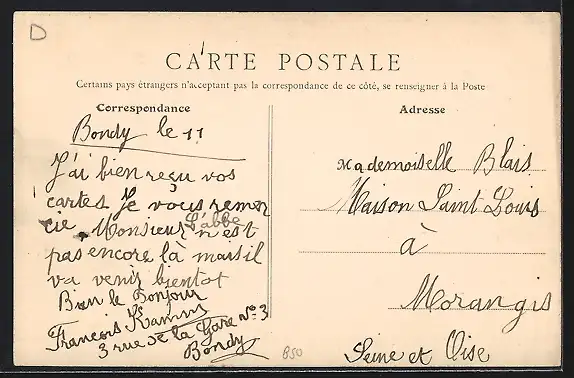 D
CARTE POSTALE
Certains pays étrangers n'acceptant pas la correspondance de ce côté, se renseigner à la Poste
Correspondance
Bondy le 11
J'ai bien reçu vos
cartes Je vous remer
cie, Monsieur L'abbe n'est
pas encore là mais il
va venir bientot
Bien le Bonjour
François
3 rue de la Gare No 3
Bondy
850
Adresse
Mademoiselle Blais
Maison Saint Louis
à
Morangis
Seine et Oise